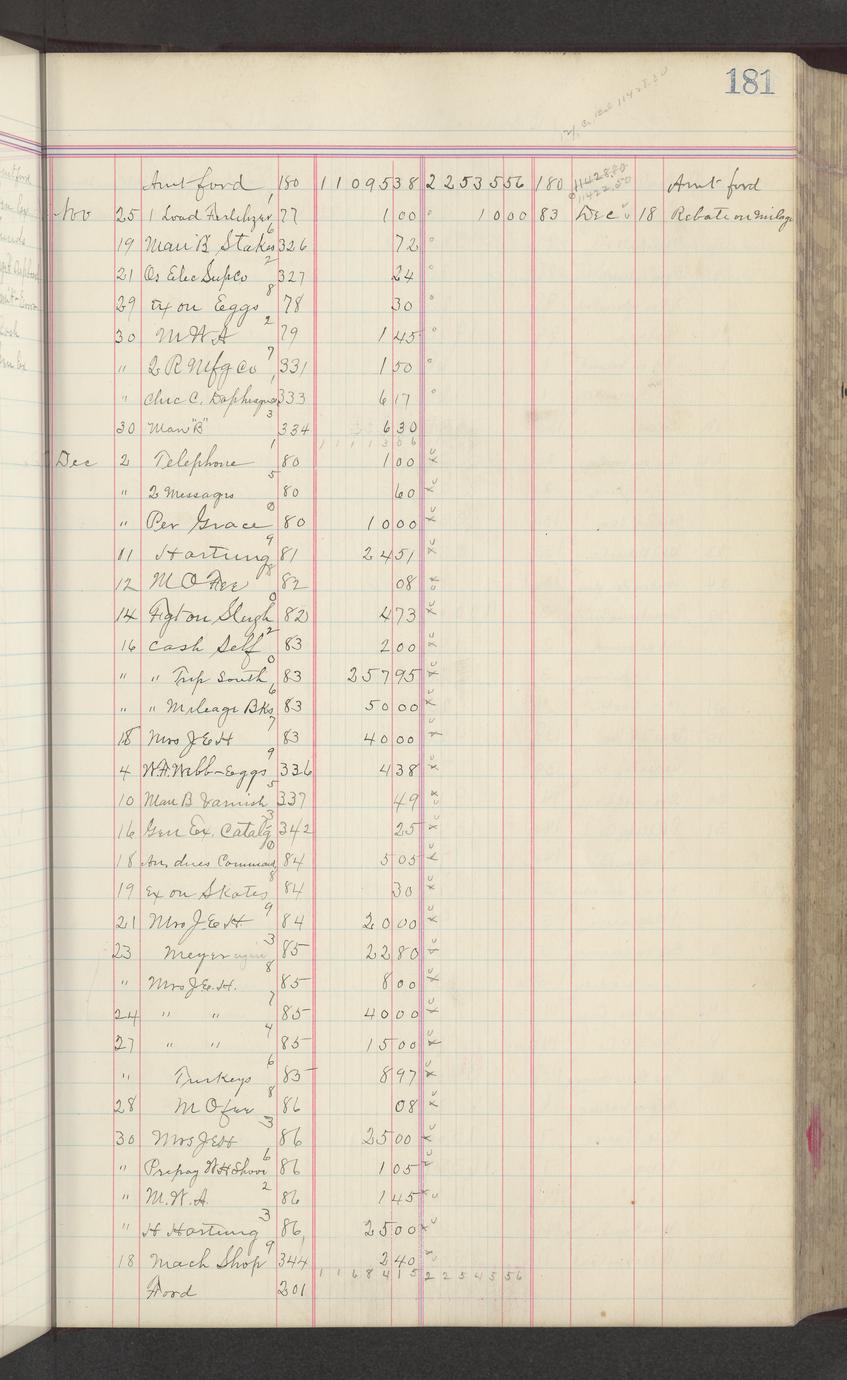 181
Amt ford 180 11 095 38 22 535 56 180 11428.80 Amt ford
Nov 25 1 Load Fertilizer 77 1 00 10 00 83 Dec 18 Rebate on Milage
19 Man'B' Stakes 326 72
21 Os Elec Sup Co 327 24
29 Ex on Eggs 78 30
30 M W A 79 1 45
" 2 R Mfg Co 331 1 50
" Chic C. 333 6 17
30 Man "B" 334 6 30
11 113 06
Dec 2 Telephone 80 1 00
" 2 Messages 80 60
" Per Grace 80 10 00
11 Hartung 81 24 51
12 M O Fee 82 08
14 Fgt on Sleigh 82 4 73
16 Cash Self 83 2 00
" " Trip South 83 257 95
" " Mileage Bks 83 50 00
18 Mrs J E H 83 40 00
4 W.H. Webb-Eggs 336 4 38
10 Man B Varnish 337 49
16 Gen Ex. Catalg 342 25
18 dues Command 84 5 05
19 Ex on Skates 84 30
21 Mrs J E H. 84 20 00
23 Meyer 85 22 80
" Mrs J E. H. 85 8 00
24 " " 85 40 00
27 " " 85 15 00
" Turkeys 85 8 97
28 M O fee 86 08
30 Mrs J E H 86 25 00
" Prepay W H Shoor 86 1 05
" M. W. A. 86 1 45
" H Hartung 86 25 00
18 Mach Shop 344 2 40
11 684 15 22 545 56
Ford 201